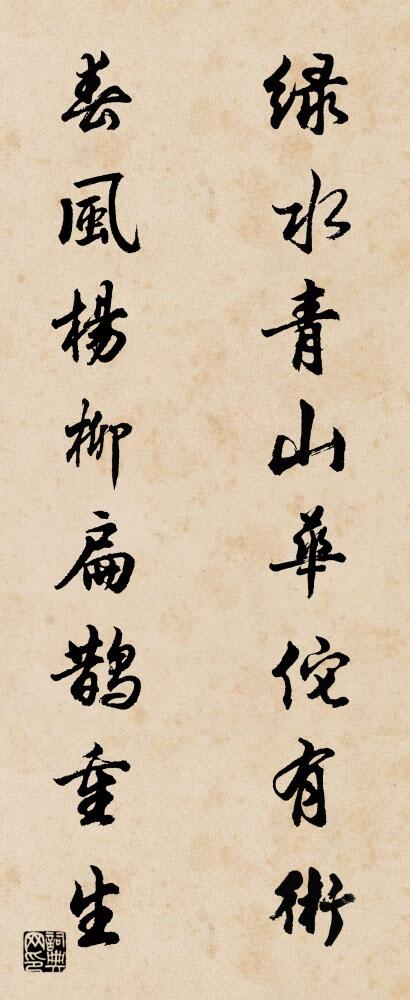 緑水青山華佗有術
春風楊柳扁鵲重生
詞典网印